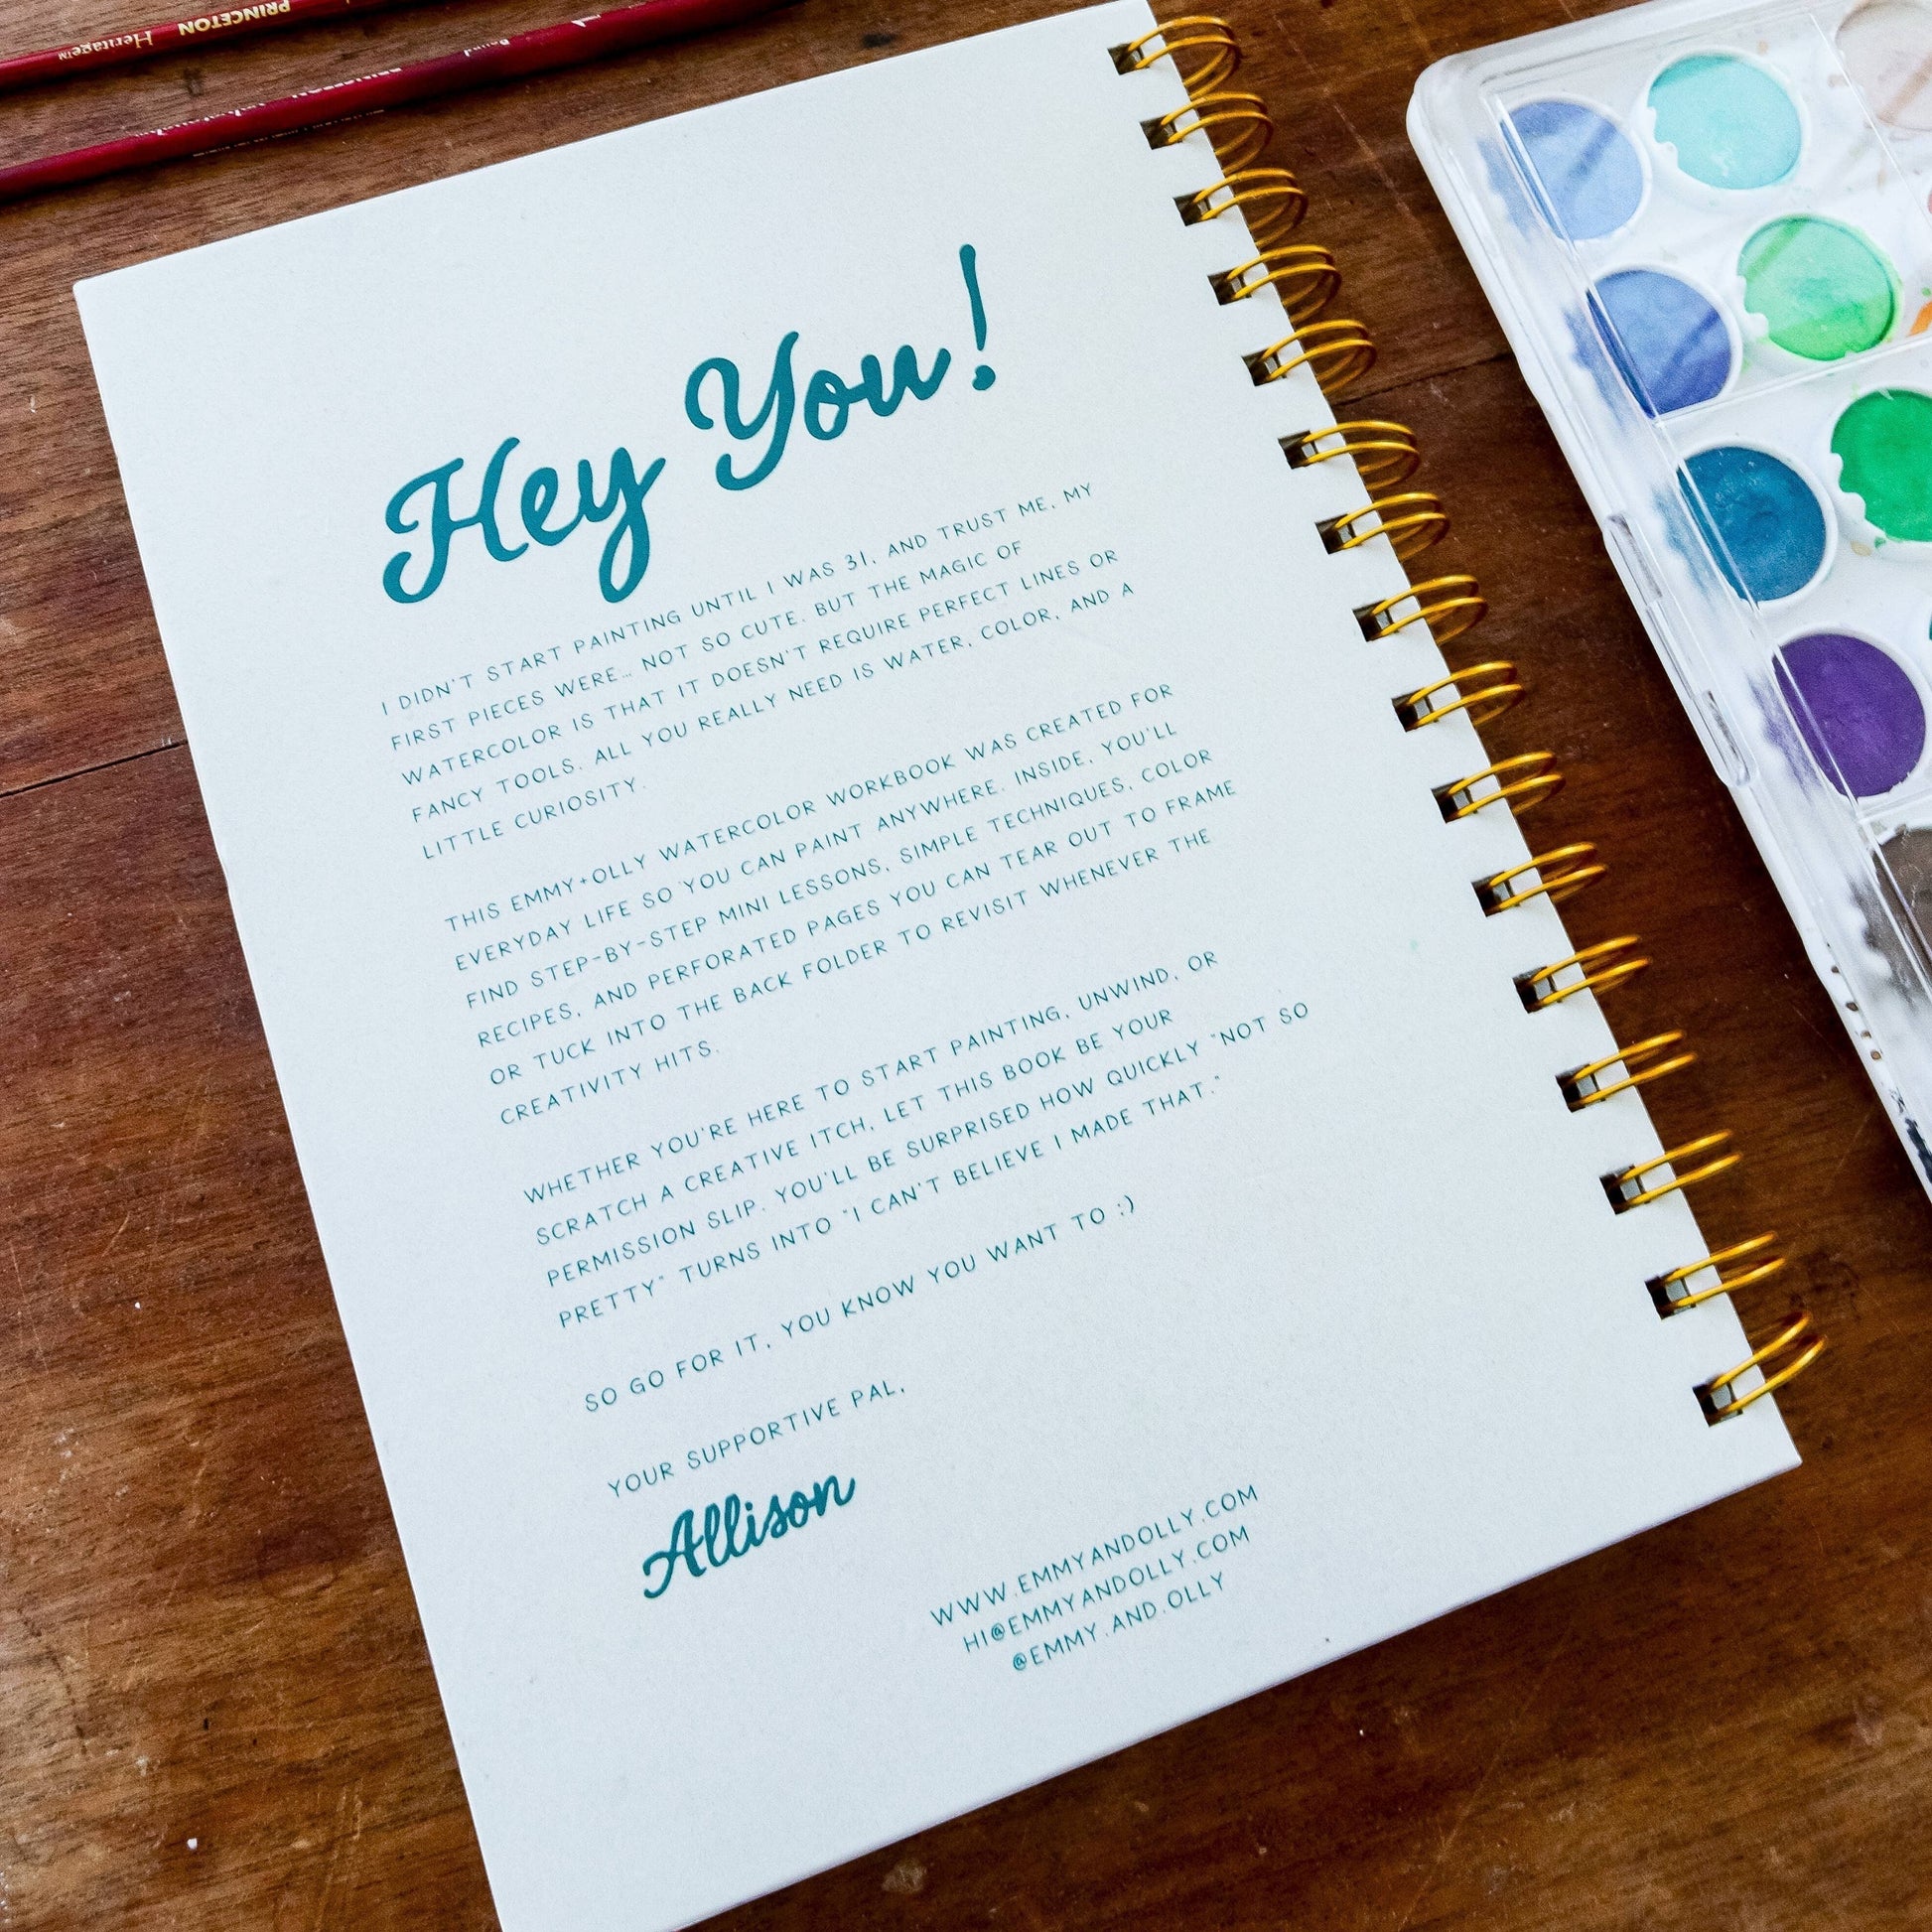 Heritage™ PRINCETON
Round
Hey You!
I DIDN'T START PAINTING UNTIL I WAS 31, AND TRUST ME, MY
FIRST PIECES WERE... NOT SO CUTE. BUT THE MAGIC OF
WATERCOLOR IS THAT IT DOESN'T REQUIRE PERFECT LINES OR
FANCY TOOLS. ALL YOU REALLY NEED IS WATER, COLOR, AND A
LITTLE CURIOSITY.
THIS EMMY+OLLY WATERCOLOR WORKBOOK WAS CREATED FOR
EVERYDAY LIFE SO YOU CAN PAINT ANYWHERE. INSIDE, YOU'LL
FIND STEP-BY-STEP MINI LESSONS, SIMPLE TECHNIQUES, COLOR
RECIPES, AND PERFORATED PAGES YOU CAN TEAR OUT TO FRAME
OR TUCK INTO THE BACK FOLDER TO REVISIT WHENEVER THE
CREATIVITY HITS.
WHETHER YOU'RE HERE TO START PAINTING, UNWIND, OR
SCRATCH A CREATIVE ITCH, LET THIS BOOK BE YOUR
PERMISSION SLIP. YOU'LL BE SURPRISED HOW QUICKLY "NOT SO
PRETTY" TURNS INTO "I CAN'T BELIEVE I MADE THAT."
SO GO FOR IT, YOU KNOW YOU WANT TO :)
YOUR SUPPORTIVE PAL,
Allison
WWW.EMMYANDOLLY.COM
HI@EMMYANDOLLY.COM
@EMMY.AND.OLLY